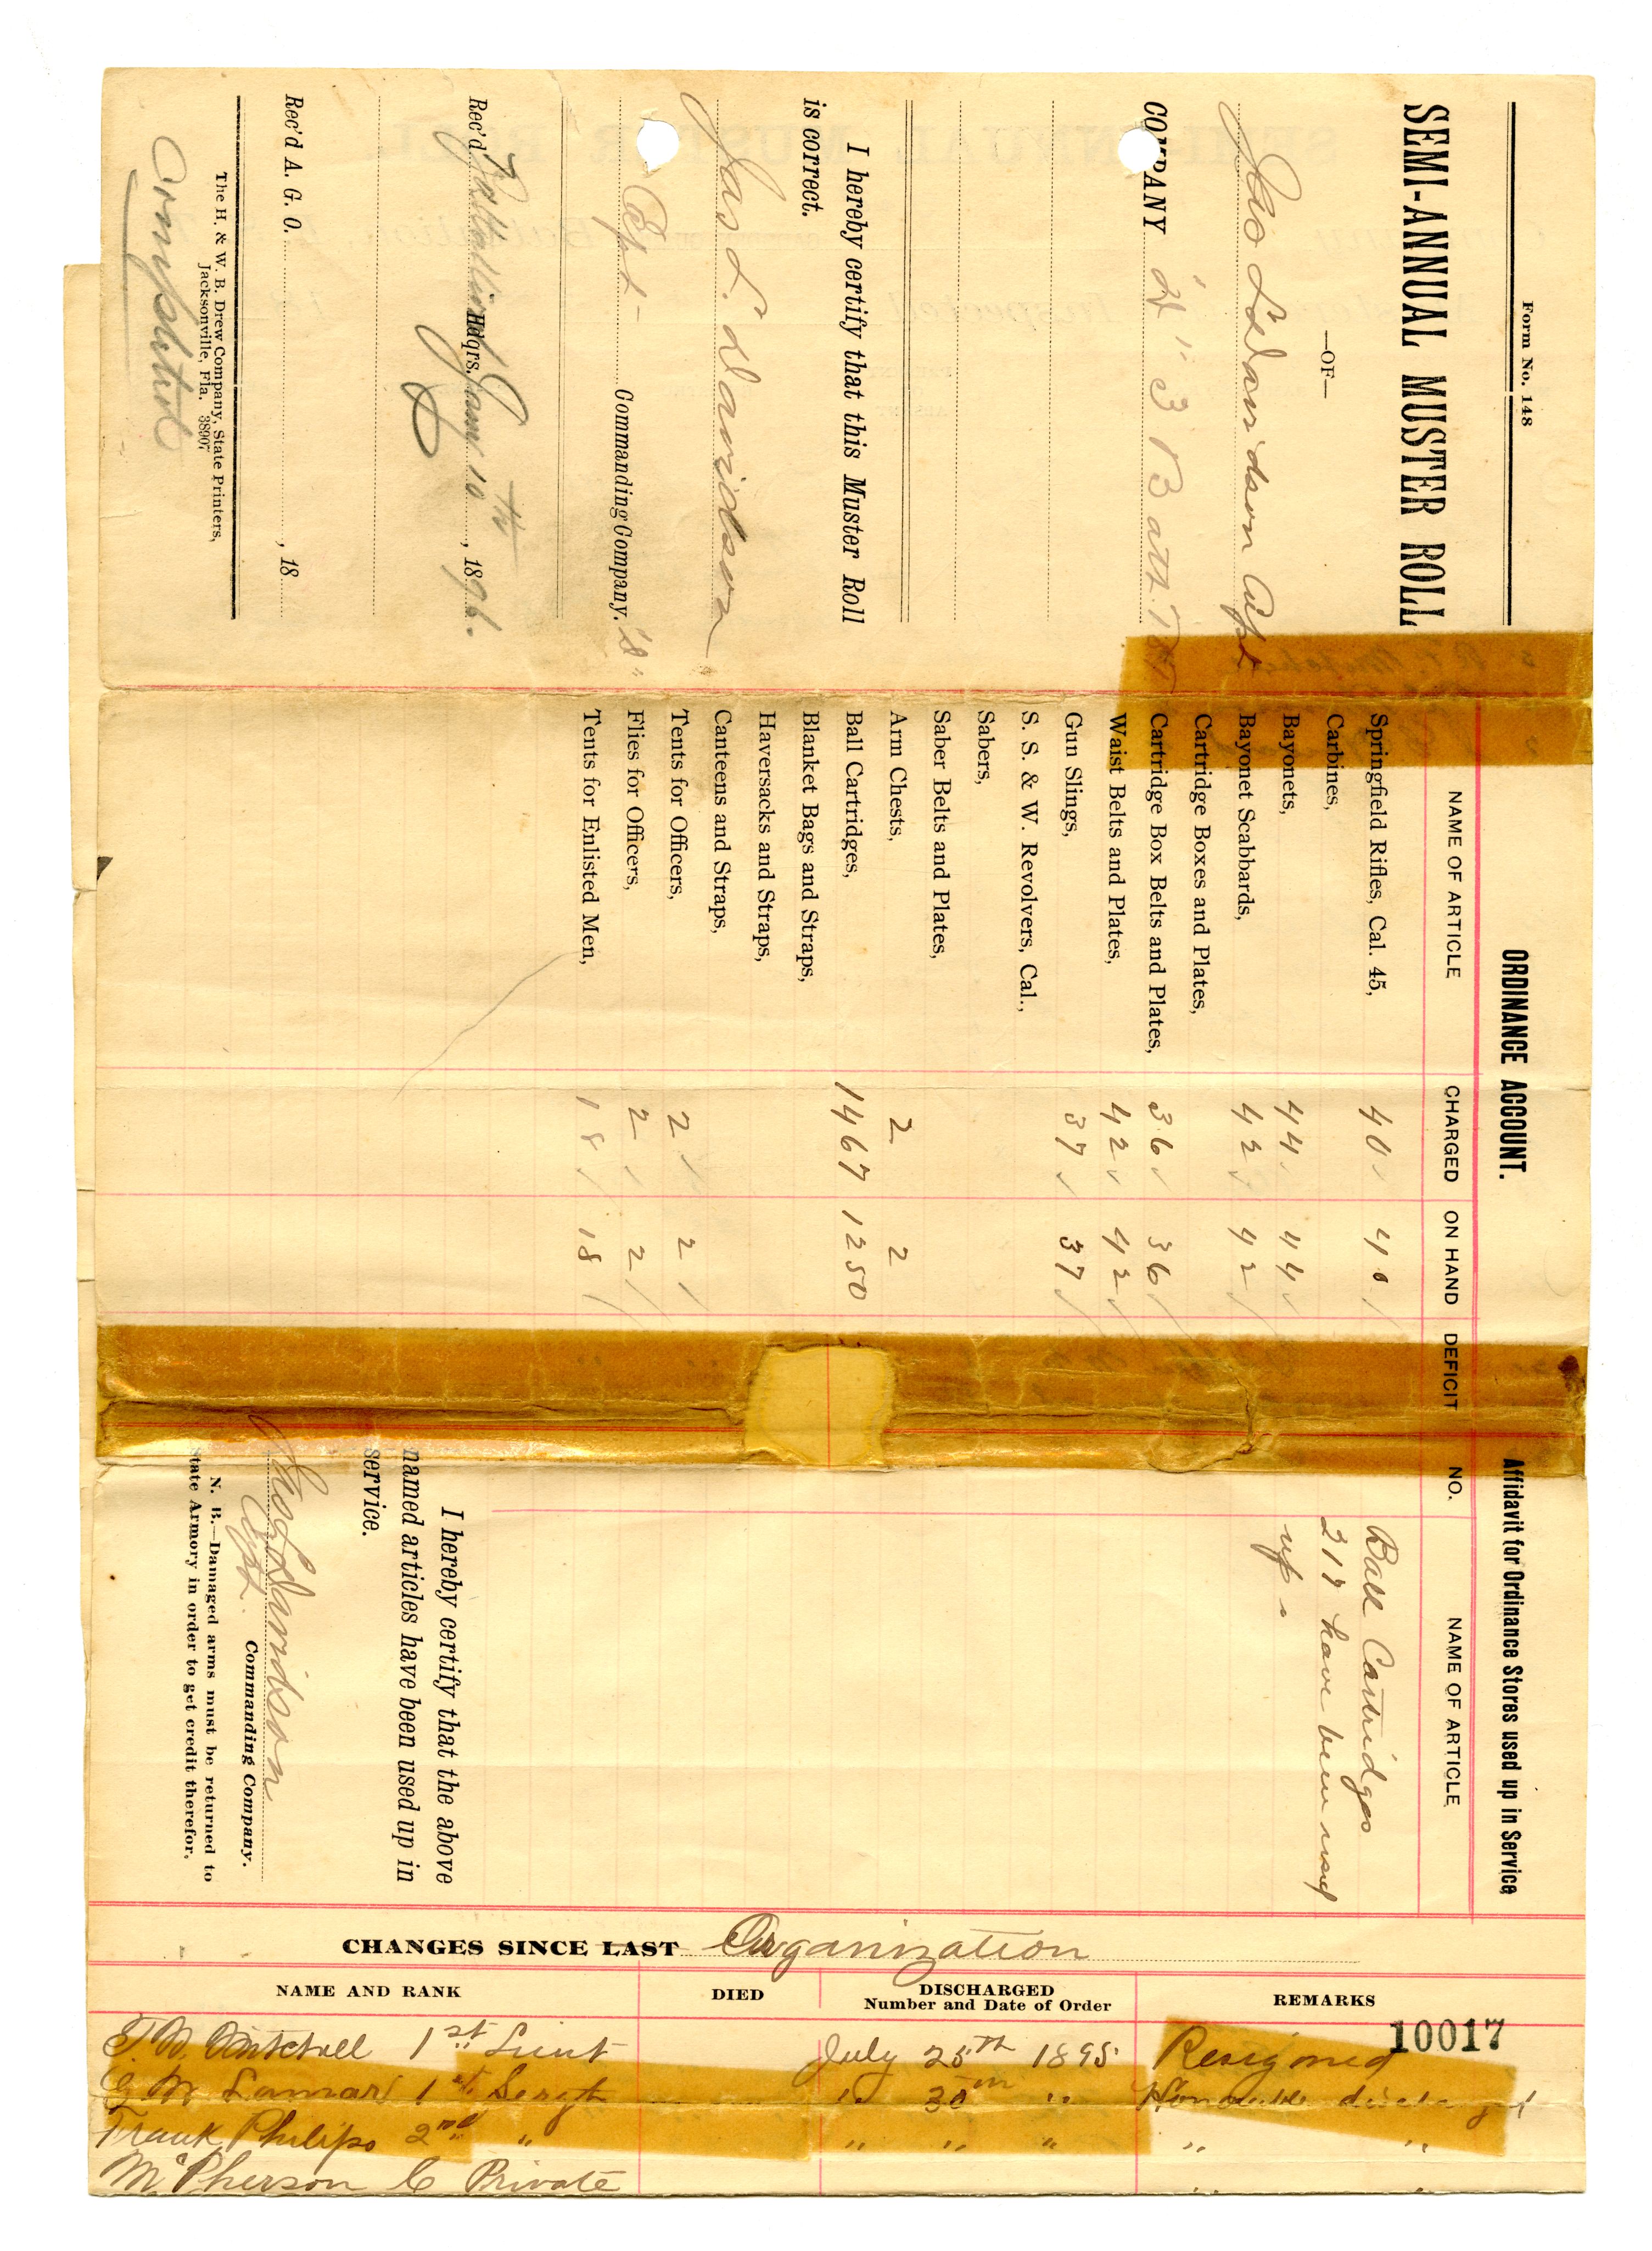 Form No. 148
SEMI-ANNUAL MUSTER ROLL
—OF—
Davidson Capt
COMPANY 3 Batt.
I hereby certify that this Muster Roll
is correct.
Jas L. Davidson
Capt Commanding Company.
Rec'd Battalion Hdqrs. Jany 10th, 1896.
Rec'd A. G. O. , 18
The H. & W. B. Drew Company, State Printers,
Jacksonville, Fla. 38907
ORDINANCE ACCOUNT.
NAME OF ARTICLE CHARGED ON HAND DEFICIT
Springfield Rifles, Cal. 45, 40 40
Carbines,
Bayonets, 44 44
Bayonet Scabbards, 42 42
Cartridge Boxes and Plates,
Cartridge Box Belts and Plates, 36 36
Waist Belts and Plates, 42 42
Gun Slings, 37 37
S. S. & W. Revolvers, Cal.,
Sabers,
Saber Belts and Plates,
Arm Chests, 2 2
Ball Cartridges, 1467 1250
Blanket Bags and Straps,
Haversacks and Straps,
Canteens and Straps,
Tents for Officers, 2 2
Flies for Officers, 2 2
Tents for Enlisted Men, 18 18
Affidavit for Ordinance Stores used up in Service,
NO. NAME OF ARTICLE
Ball Cartridges
217 have been used
up.
I hereby certify that the above
named articles have been used up in
service.
Davidson
Capt. Commanding Company.
N. B.—Damaged arms must be returned to
State Armory in order to get credit therefor.
CHANGES SINCE LAST Organization
NAME AND RANK DIED DISCHARGED Number and Date of Order REMARKS
10017
Mitchell 1st Lieut July 25th 1895 Resigned
Lamar 1st Sergt " 30th " Honorable discharged
Frank Philips 2nd " " " " " "
McPherson C Private